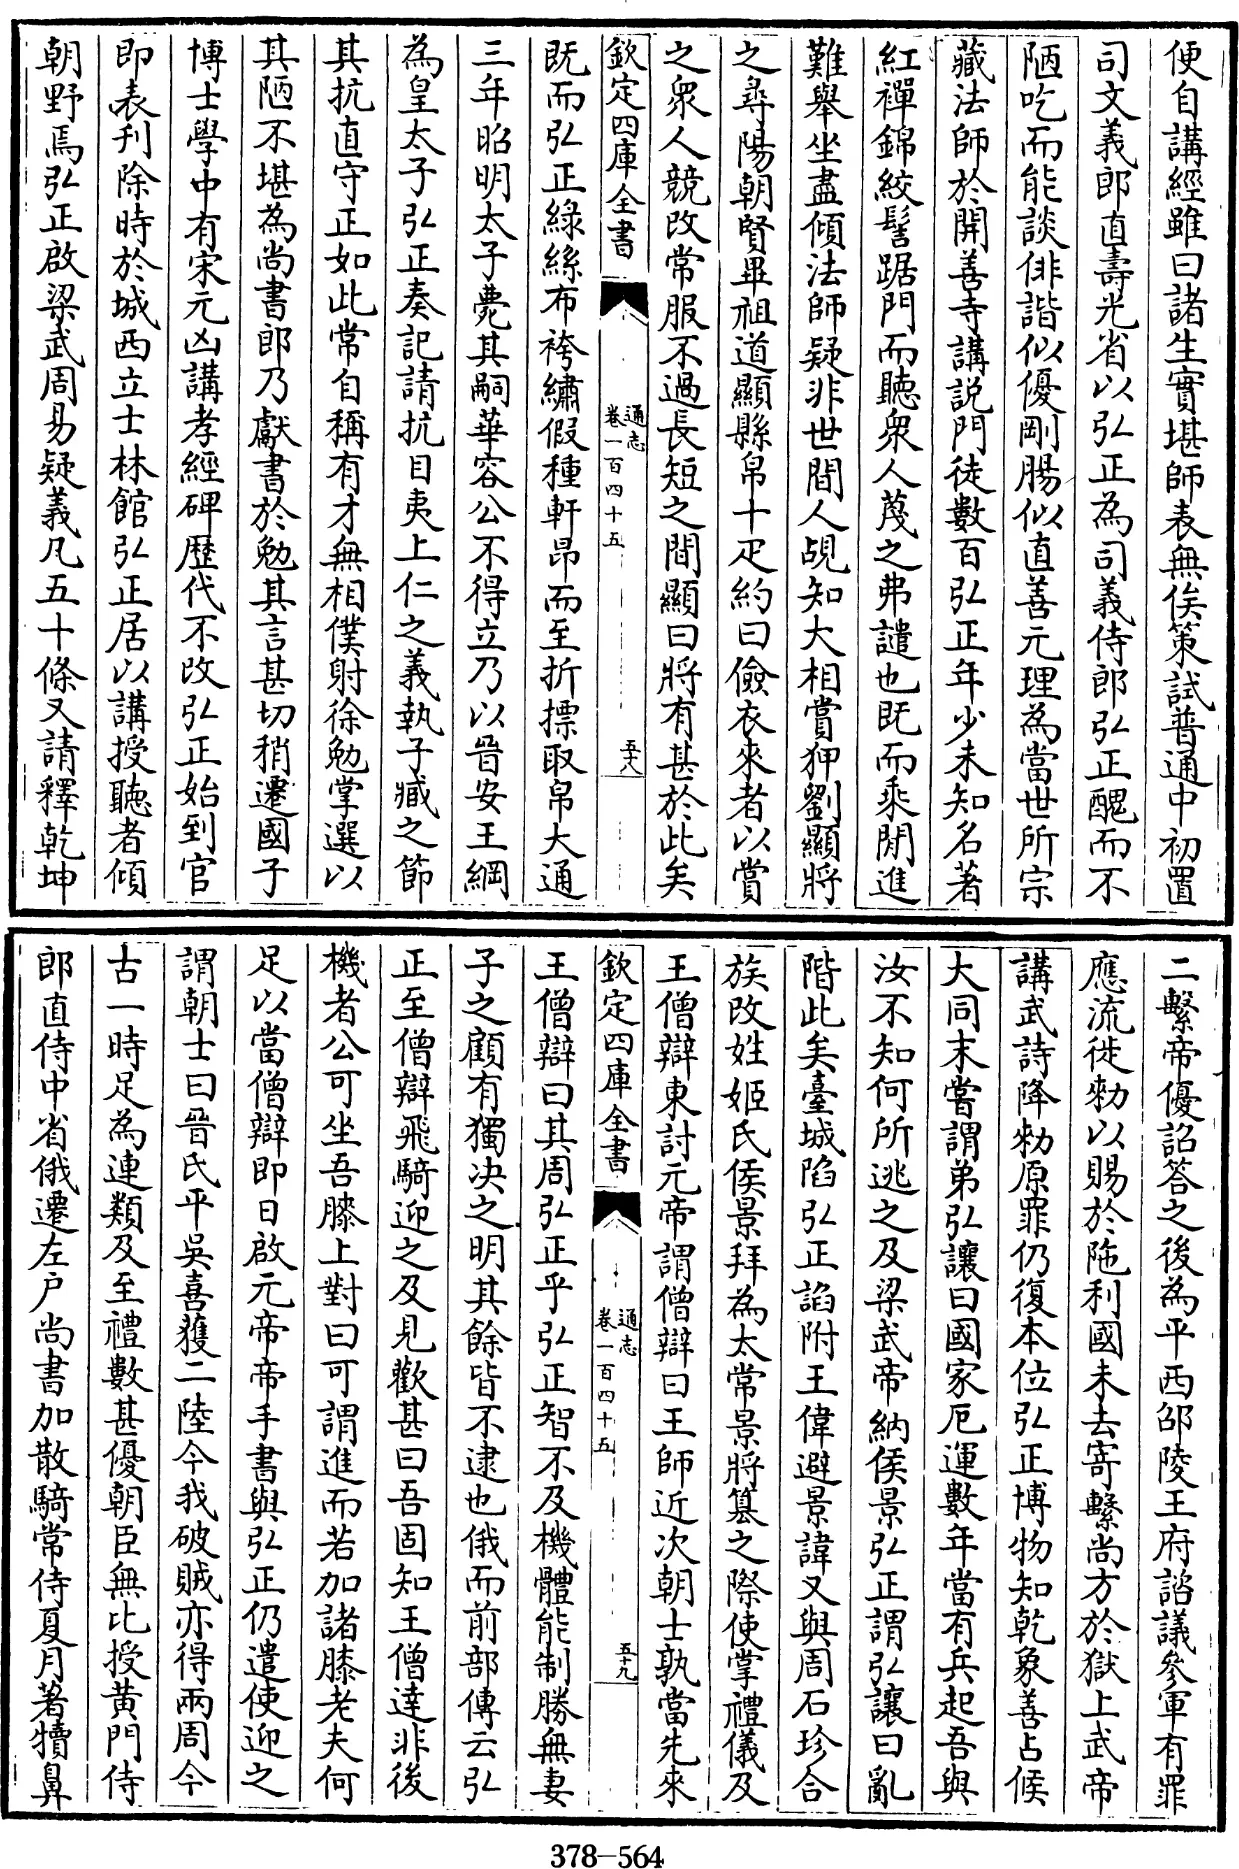 便自講經雖曰諸生實堪師表無俟策試普通中初置
司文義郎直壽光省以弘正為司義侍郎弘正醜而不
陋吃而能談俳諧似優剛腸似直善元理為當世所宗
藏法師於開善寺講説門徒數百弘正年少未知名著
紅襌錦絞髻踞門而聽衆人蔑之弗譴也既而乘閒進
難舉坐盡傾法師疑非世間人覘知大相賞狎劉顯將
之尋陽朝賢畢祖道顯縣帛十疋約曰儉衣來者以賞
之衆人競改常服不過長短之間顯曰將有甚於此矣
欽定四庫全書
通志
卷一百四十五
五十八
既而弘正綠絲布袴繡假種軒昂而至折摽取帛大通
三年昭明太子薨其嗣華容公不得立乃以晉安王綱
為皇太子弘正奏記請抗目夷上仁之義執子臧之節
其抗直守正如此常自稱有才無相僕射徐勉掌選以
其陋不堪為尚書郎乃獻書於勉其言甚切稍遷國子
博士學中有宋元凶講孝經碑歴代不改弘正始到官
即表刋除時於城西立士林館弘正居以講授聽者傾
朝野焉弘正啟梁武周易疑義凡五十條又請釋乾坤
二繫帝優詔答之後為平西邵陵王府諮議參軍有罪
應流徙勑以賜於陁利國未去寄繫尚方於獄上武帝
講武詩降勑原罪仍復本位弘正博物知乾象善占候
大同末嘗謂弟弘讓曰國家厄運數年當有兵起吾與
汝不知何所逃之及梁武帝納侯景弘正謂弘讓曰亂
階此矣臺城陷弘正諂附王偉避景諱又與周石珍合
族改姓姬氏侯景拜為太常景將篡之際使掌禮儀及
王僧辯東討元帝謂僧辯曰王師近次朝士孰當先來
欽定四庫全書
通志
卷一百四十五
五十九
王僧辯曰其周弘正乎弘正智不及機體能制勝無妻
子之顧有獨決之明其餘皆不逮也俄而前部傳云弘
正至僧辯飛騎迎之及見歡甚曰吾固知王僧達非後
機者公可坐吾膝上對曰可謂進而若加諸膝老夫何
足以當僧辯即日啟元帝帝手書與弘正仍遣使迎之
謂朝士曰晉氏平吳喜獲二陸今我破賊亦得兩周今
古一時足為連類及至禮數甚優朝臣無比授黃門侍
郎直侍中省俄遷左戶尚書加散騎常侍夏月著犢鼻
378-564